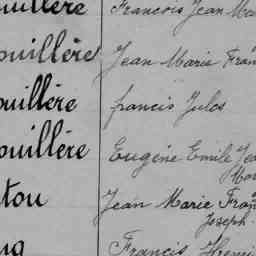 uillère François Jean Ma
ouillère Jean Marie Fran
ouillère francis Jules
ouillère Eugène Emile Je
Mar
tou Jean Marie Fran
Joseph
Francis